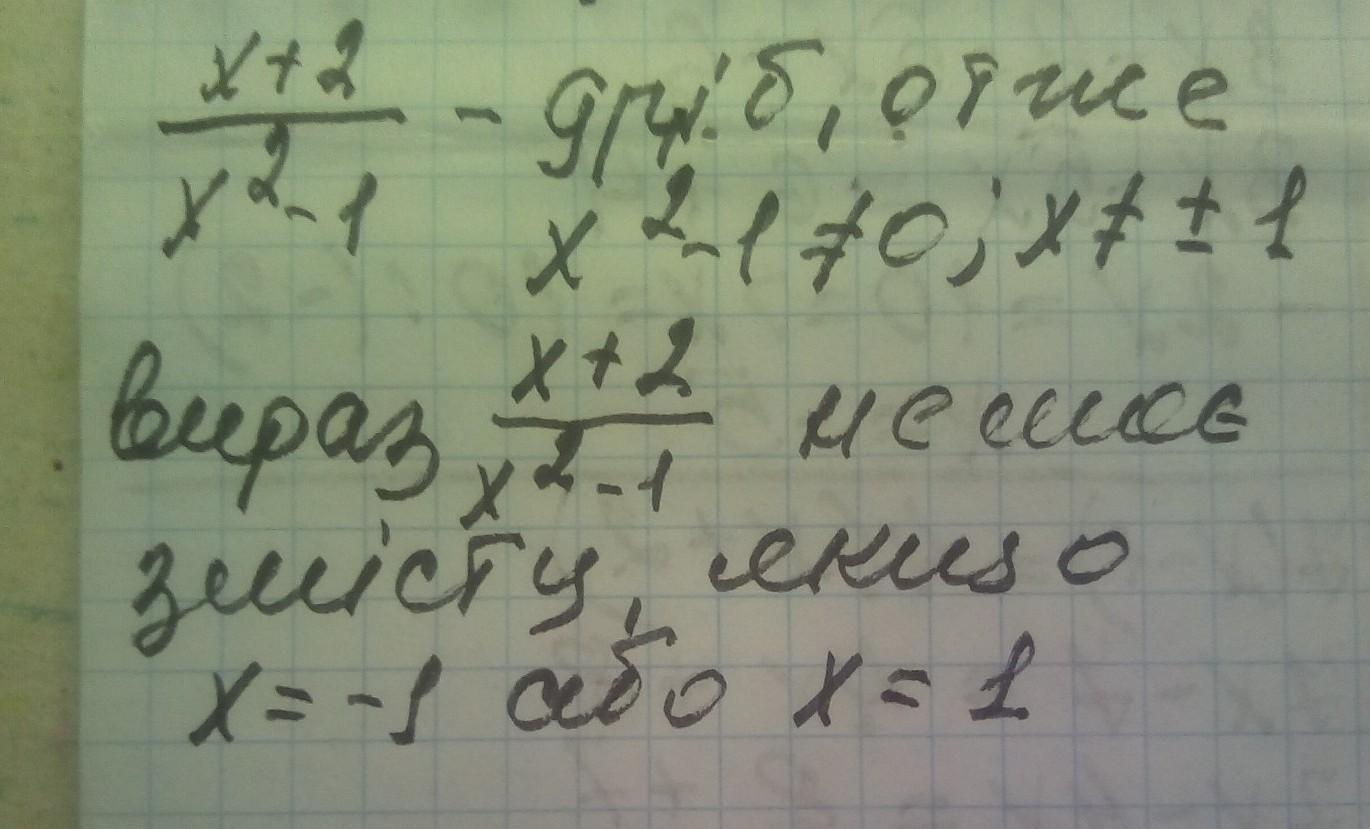 x+2/x²-1 - дріб, отже
x²-1≠0; x≠±1
вираз x+2/x²-1 не має
змісту, якщо
x=-1 або x=1